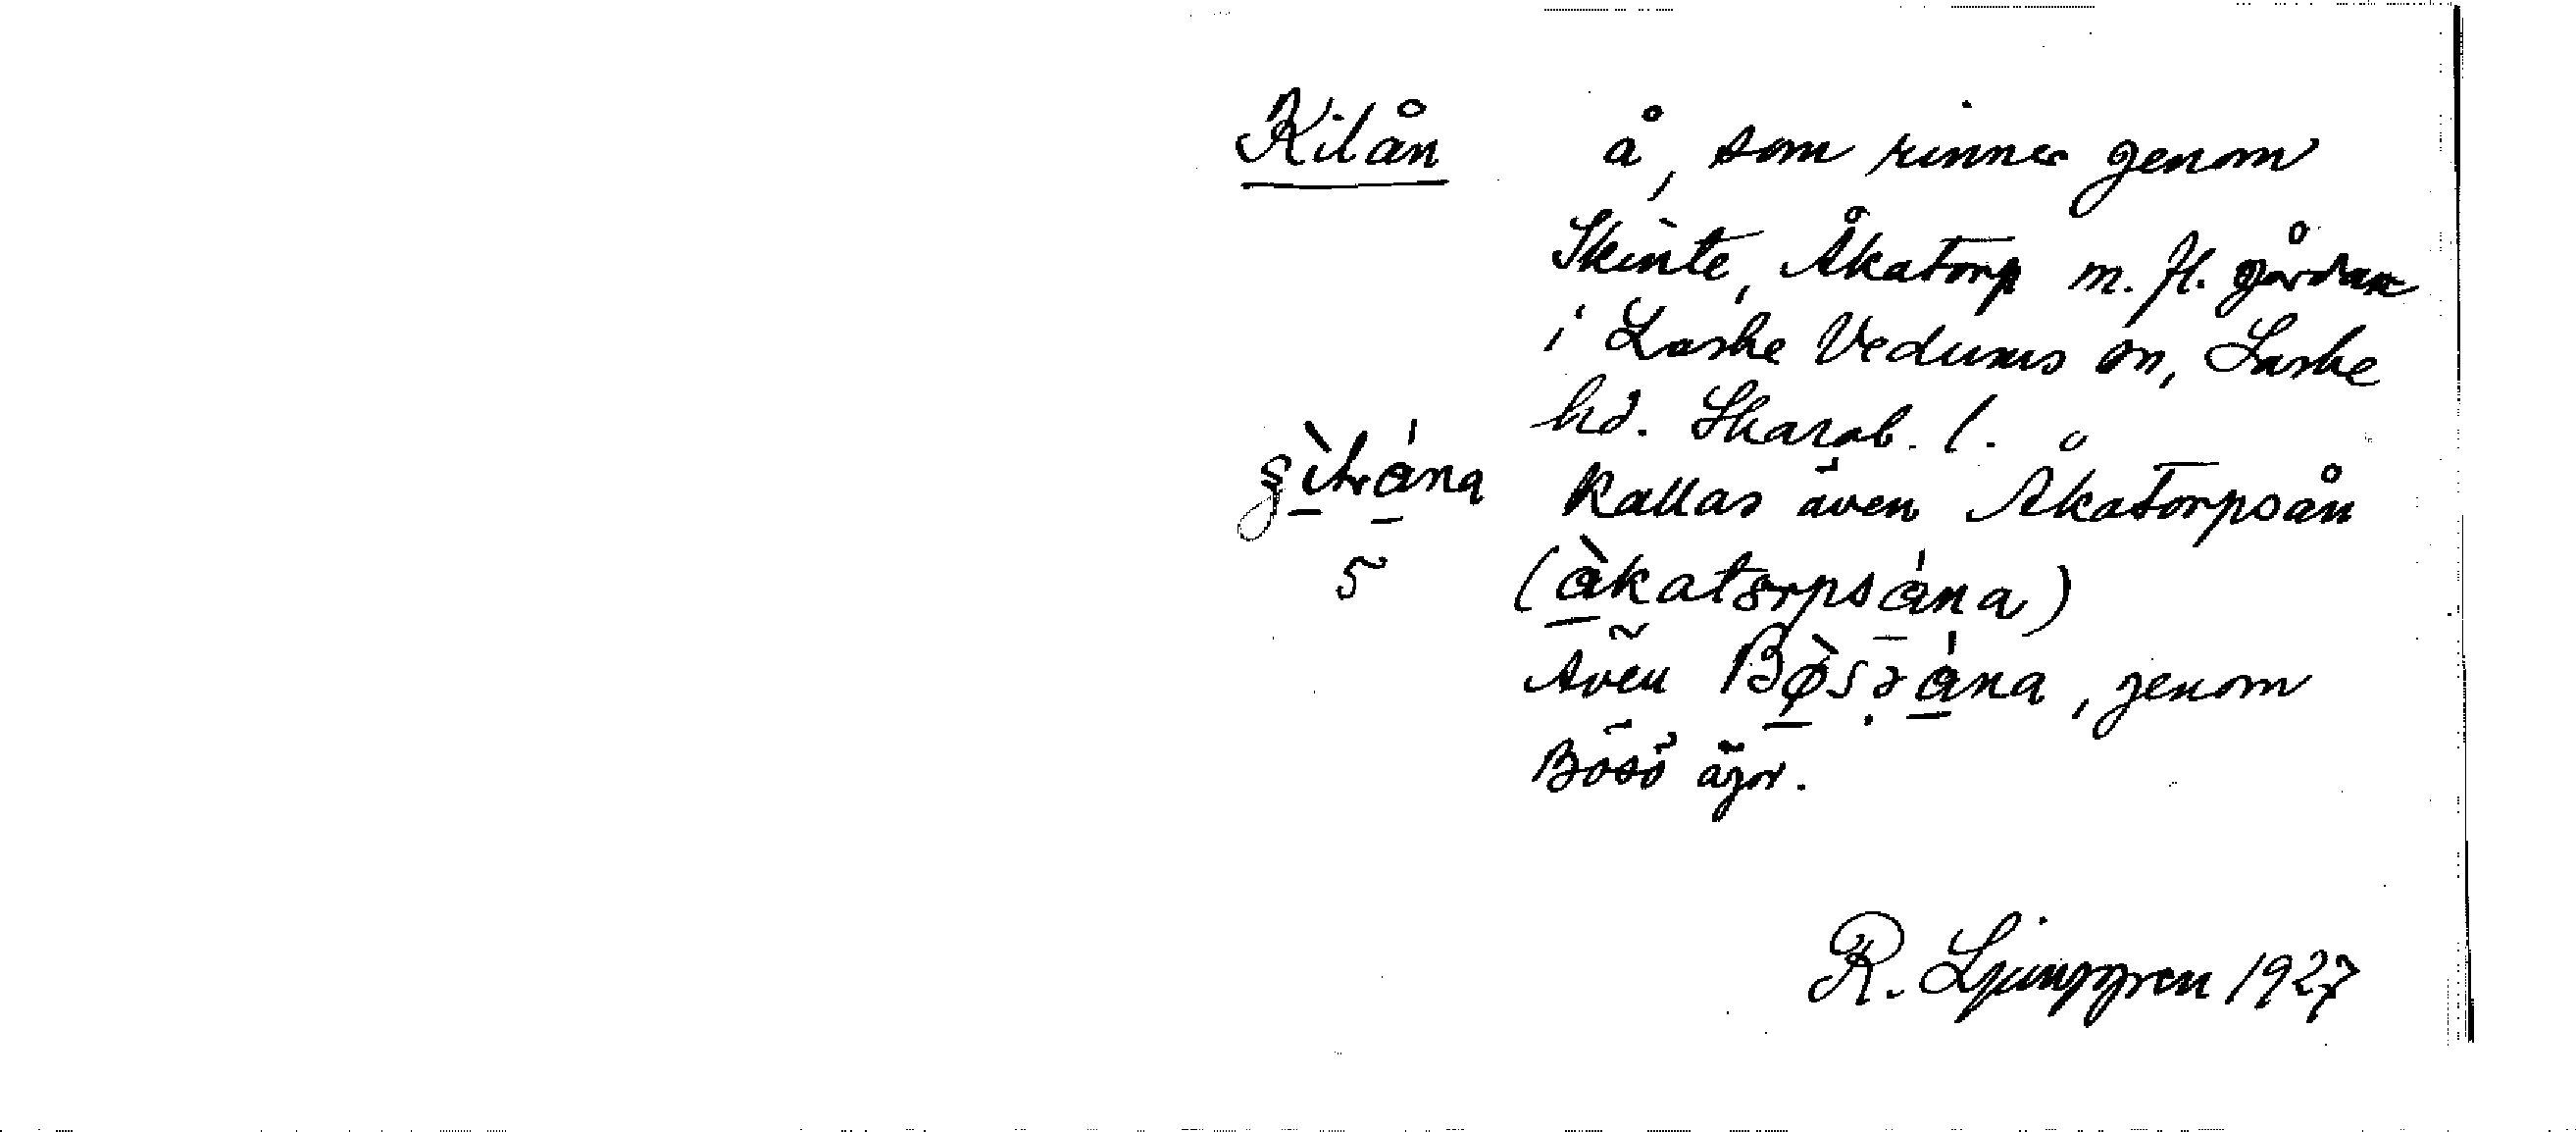 Kilån å, som rinner genom
Skinte, Åkatorp m. fl. gårdar
i Laske Vedums sn, Laske
hd. Skarab. l.
Kallas även Åkatorpsån
5 (åkatorpsåna)
Även Bøsəåna, genom
Bösö ägor.
R. Ljunggren 1927